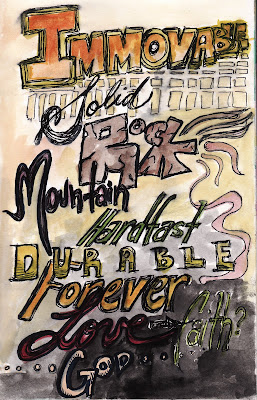 IMMOVABLE
Solid
ROCK
Mountain
Hardfast
DURABLE
forever
Love faith?
GOD...